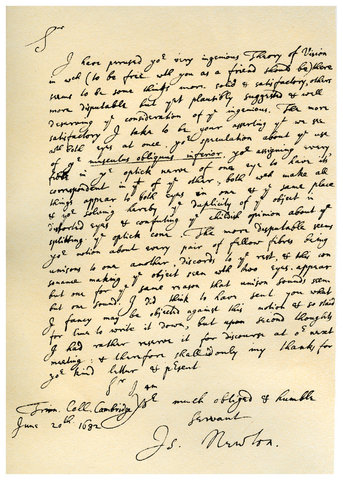 Sr
I have perused yor very ingenious Theory of Vision
in wch (to be free wth you as a friend should be) there
seems to be some things more solid & satisfactory, others
more disputable but yet plausibly suggested & well
deserving ye consideration of ye ingenious. The more
satisfactory I take to be your asserting yt we see
wth both eyes at once, yor speculation about ye use
of ye musculus obliquus inferior, yor assigning every
fibre in ye optick nerve of one eye to have its
correspondent in yt of ye other, both wch make all
things appear to both eyes in one & ye same place
& yor solving hereby ye duplicity of ye object in
distorted eyes & confuting ye childish opinion about ye
splitting ye optick cone. The more disputable seems
yor notion about every pair of fellow fibres being
unisons to one another, discords to ye rest, & this con
sonance making ye object seen wth two eyes appear
but one for ye same reason that unison sounds seem
but one sound. I did think to have sent you what
I fancy may be objected against this notion & so staid
for time to write it down, but upon second thoughts
I had rather reserve it for discourse at or next
meeting: & therefore shall add only my thanks for
yor kind letter & present
Sr I am
Yor much obliged & humble
Trin. Coll. Cambridge
Servant
June 20th 1682
Is. Newton.